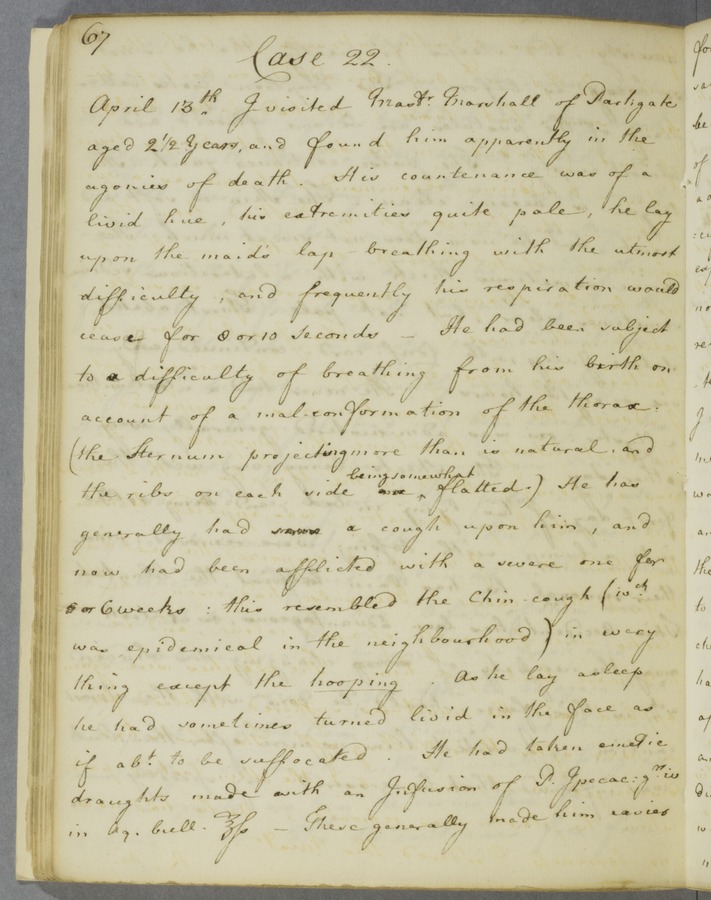 67
Case 22.
April 13th. I visited Mastr. Marshall of Parkgate
aged 2 1/2 Years, and found him apparently in the
agonies of death. His countenance was of a
livid hue, his extremities quite pale, he lay
upon the maid's lap breathing with the utmost
difficulty, and frequently his respiration would
cease for 8 or 10 seconds — He had been subject
to a difficulty of breathing from his birth on
account of a mal-conformation of the thorax.
(the Sternum projecting more than is natural, and
being somewhat
the ribs on each side flatted.) He has
generally had a cough upon him, and
now had been afflicted with a severe one for
5 or 6 weeks: this resembled the Chin-cough (wch
was epidemical in the neighbourhood) in every
thing except the hooping. As he lay asleep
he had sometimes turned livid in the face as
if abt. to be suffocated. He had taken emetic
draughts made with an Infusion of P. Ipecac: grs iv
in Aq. bull. ℥ſs — These generally made him easier